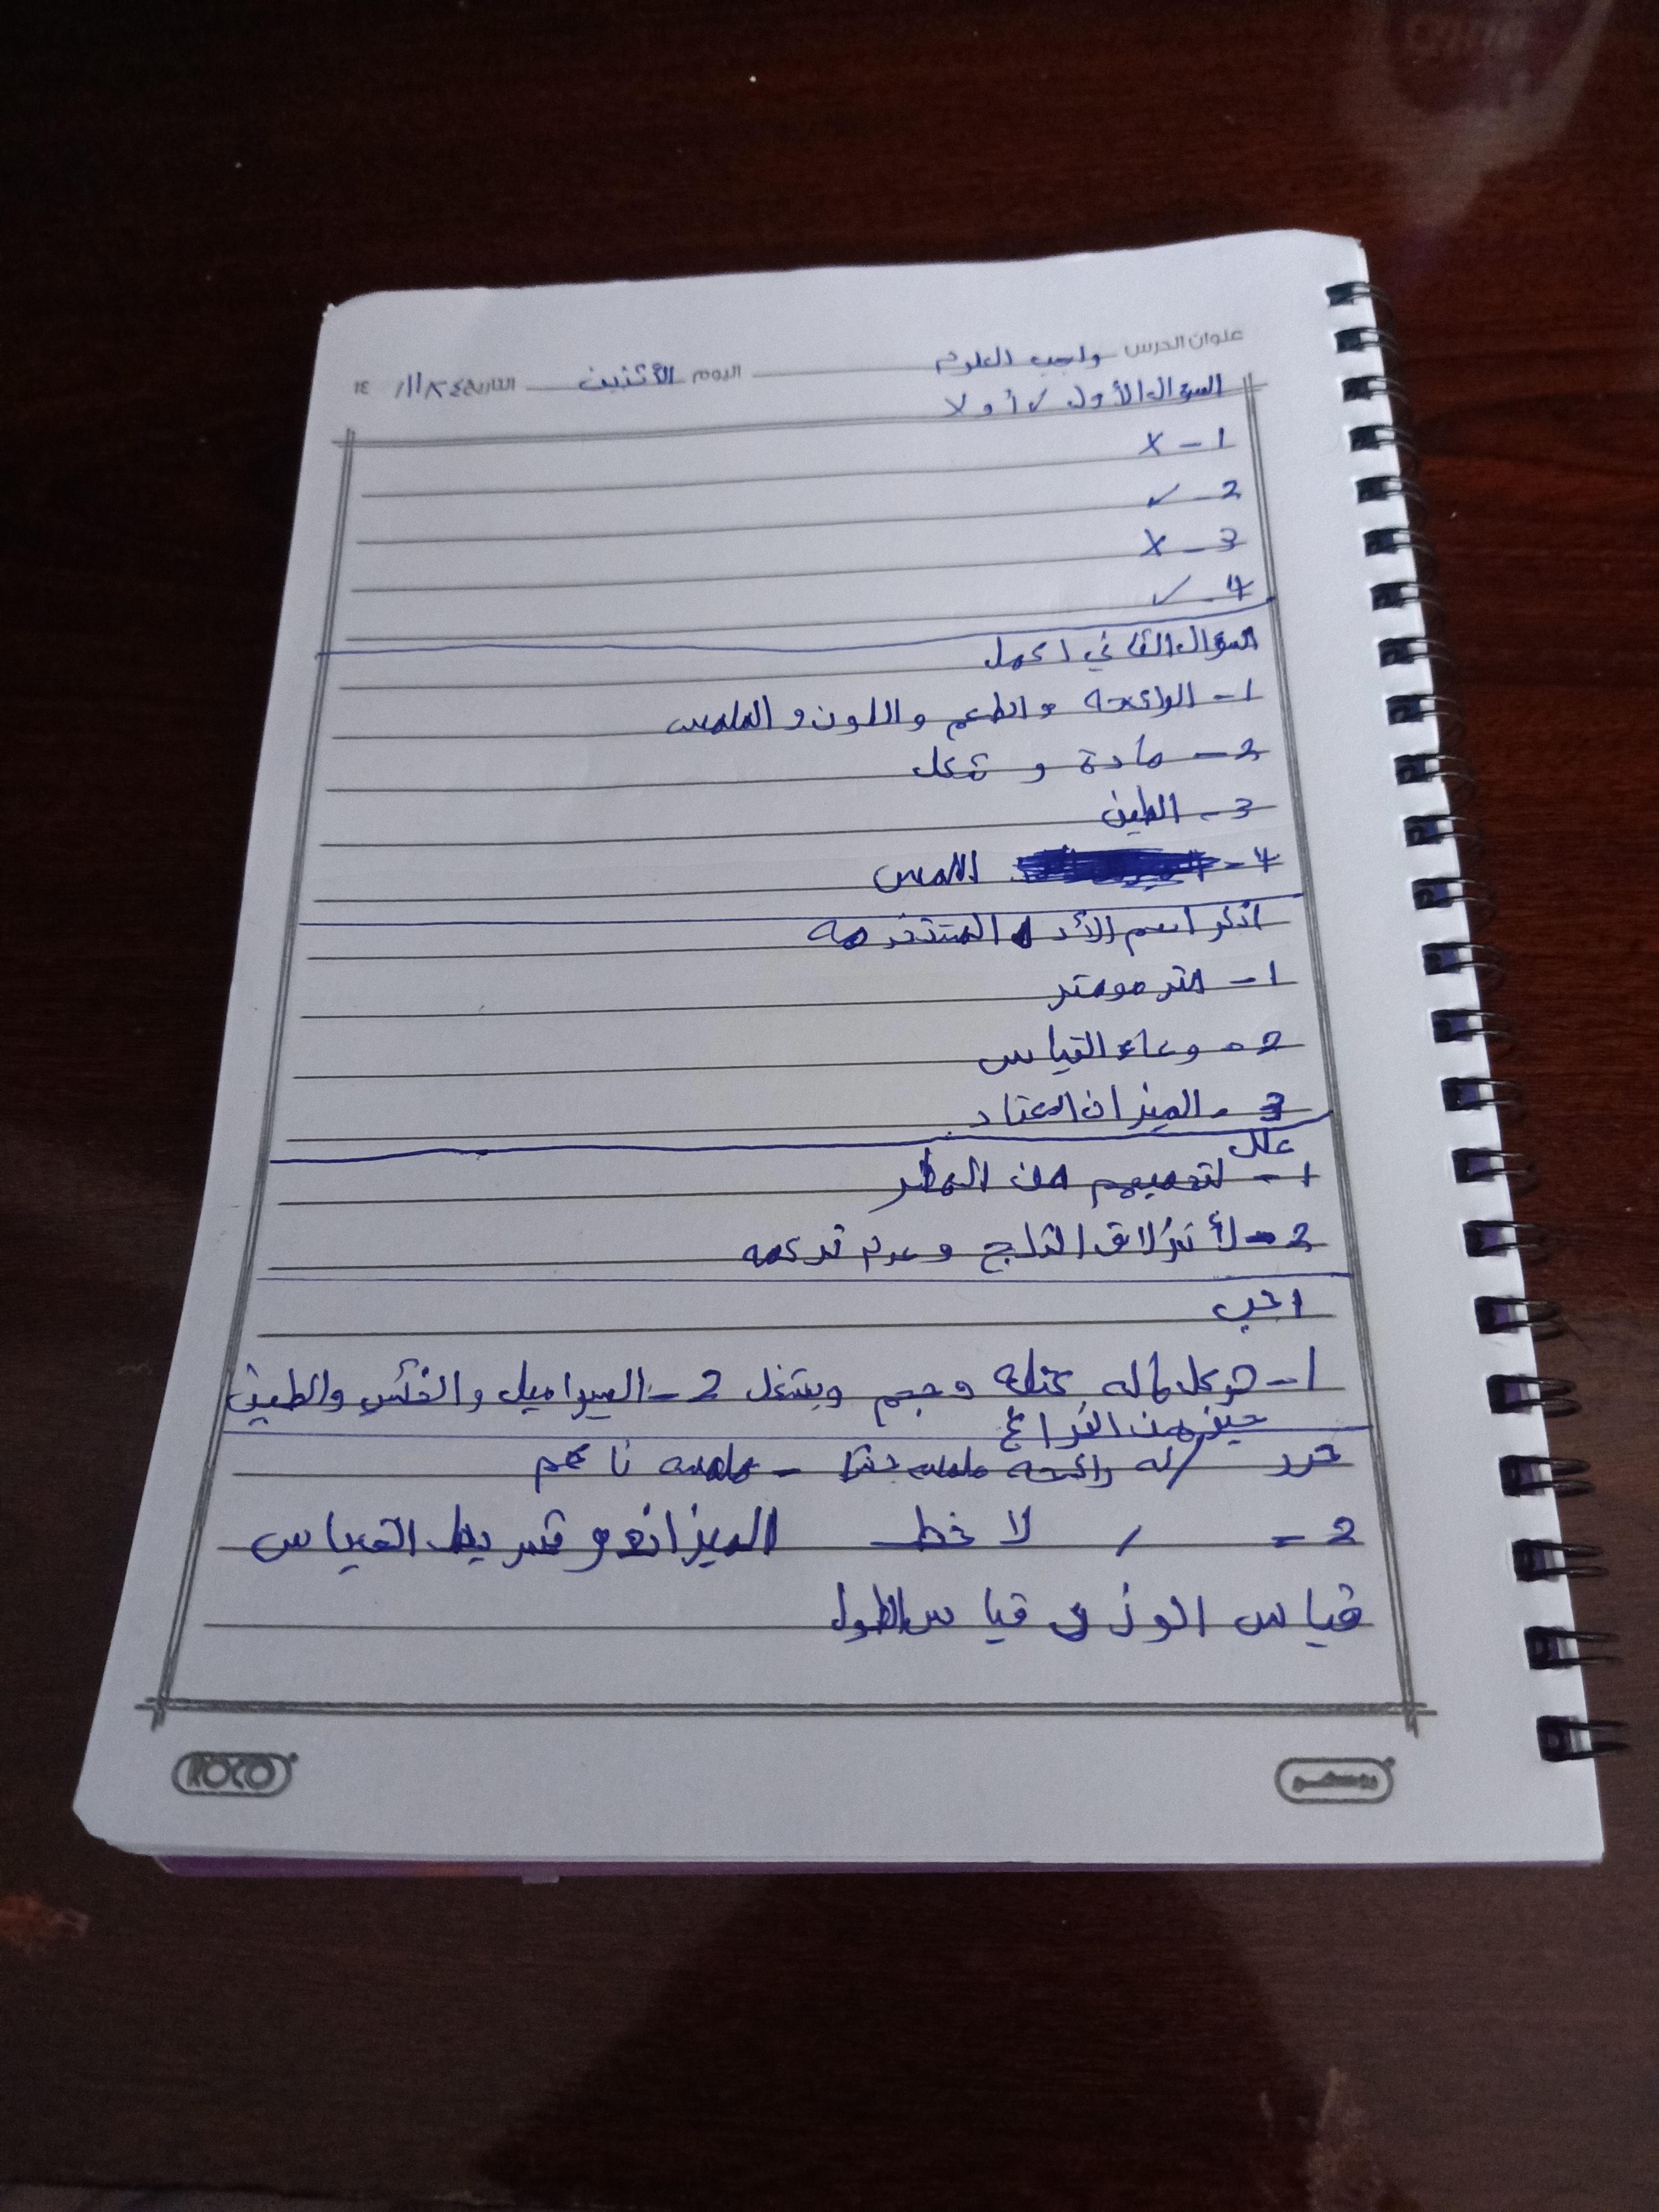 عنوان الدرس واجب العلوم اليوم الأثنين التاريخ ١٤
السؤال الأول √ أو لا
1 - X
2 - ✓
3 - X
4 - ✓
السؤال الثاني اكمل
1 - الرائحه والطعم واللون و الملمس
2 - مادة و شكل
3 - الطين
4 - اللمس
اذكر اسم الأداه المستخدمه
1 - الترمومتر
2 - وعاء القياس
3 - الميزان المعتاد
علل
1 - لتحميهم من المطر
2 - لأنزلاق الثلج وعدم تركمه
اجب
1 - هو كل ماله كتله وحجم ويشغل 2 - السيراميل والخشب والطين
حيز من الفراغ
له رائحه ملمسه خشن - ملمسه ناعم
2 - / لاحظ الميزان و شريط القياس
قياس الوزن قياس الطول
روكو
ROCO